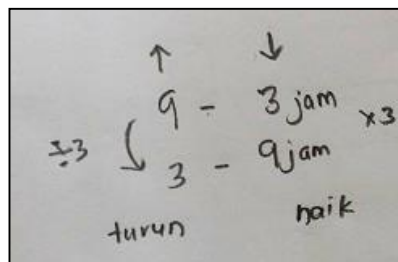 ↑ ↓
9 - 3 jam
÷3 ×3
3 - 9 jam
turun naik